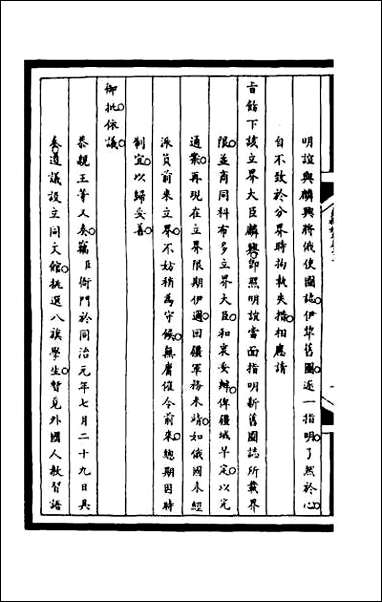 明誼與麟興將俄使圖誌伊犂舊圖逐一指明了然於心
自不致於分界時拘執失措相應請
旨飭下該立界大臣麟興卽照明誼當面指明新舊圖誌所載界
限並商同科布多立界大臣和衷妥辦俾疆域早定以完
通案再現在立界限期伊邇回疆軍務未靖如俄國未經
派員前來立界不妨稍為守候無庸催令前來總期因時
制宜以歸妥善
御批依議
恭親王等又奏竊臣衙門於同治元年七月二十九日具
奏遵議設立同文館挑選八旗學生暫見外國人教習語